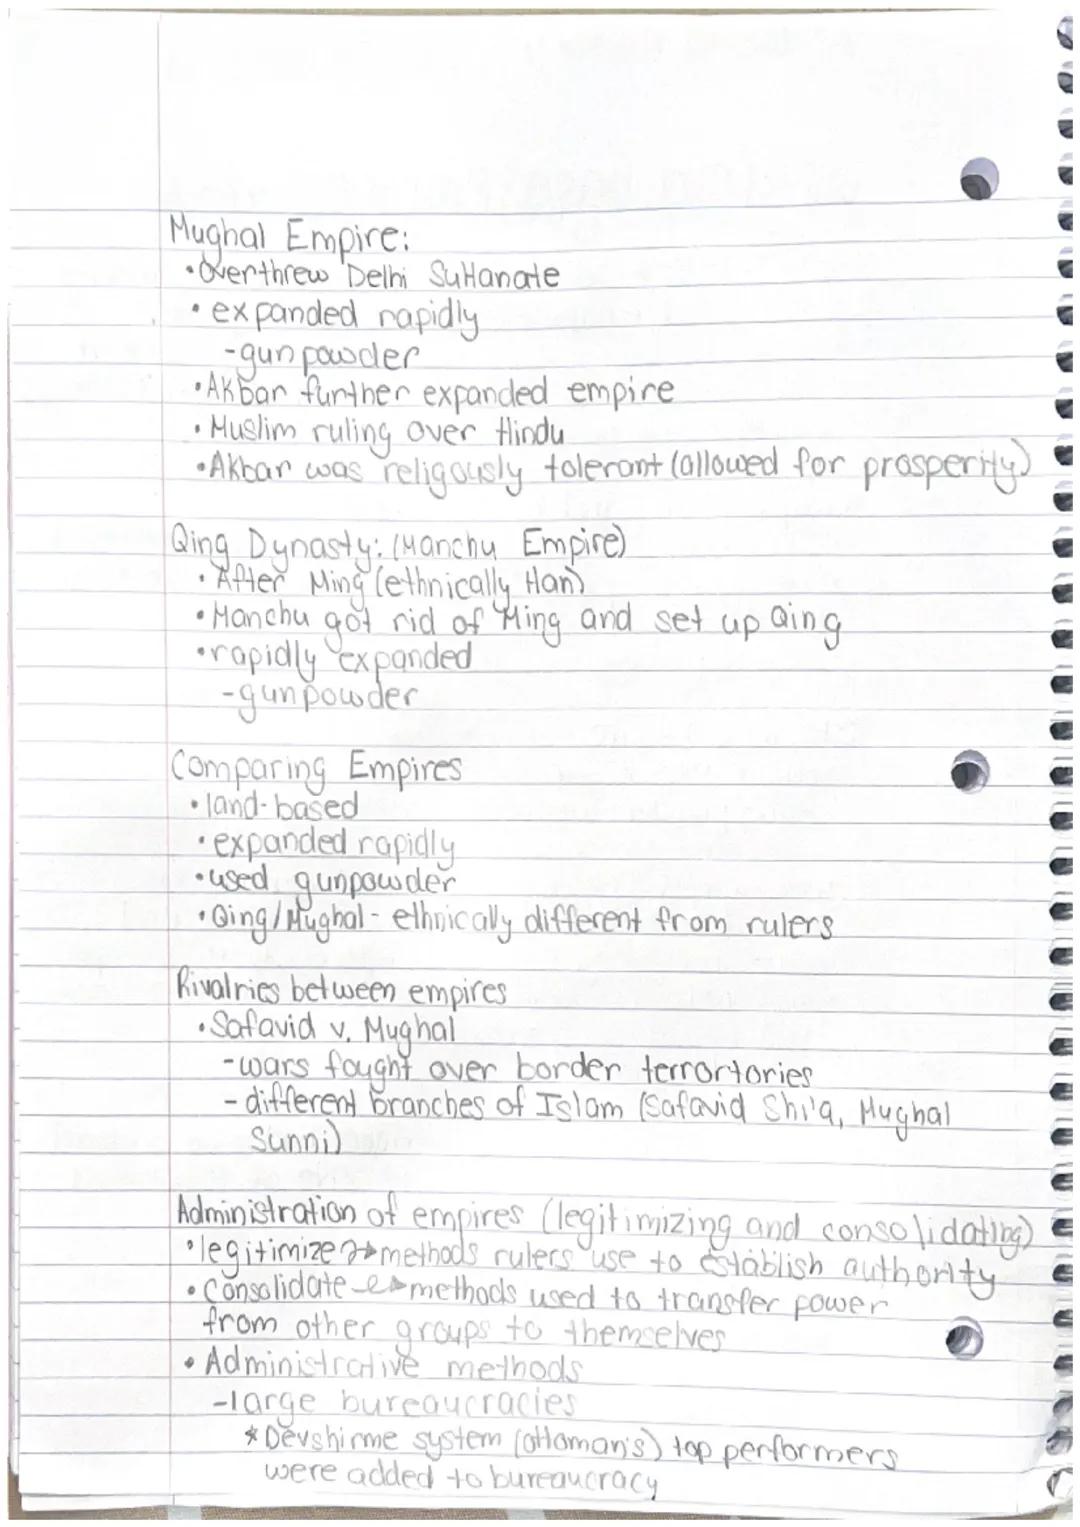 Mughal Empire:
• Overthrew Delhi Sultanate
• expanded rapidly
-gunpowder
• Akbar further expanded empire
• Muslim ruling over Hindu
• Akbar was religously tolerant (allowed for prosperity)
Qing Dynasty: (Manchu Empire)
• After Ming (ethnically Han)
• Manchu got rid of Ming and set up Qing
• rapidly expanded
-gunpowder
Comparing Empires
• land-based
• expanded rapidly
• used gunpowder
• Qing/Mughal - ethnically different from rulers
Rivalries between empires
• Safavid v. Mughal
-wars fought over border terrortories
- different branches of Islam (Safavid Shi'a, Mughal
Sunni)
Administration of empires (legitimizing and consolidating)
• legitimize → methods rulers use to establish authority
• Consolidate → methods used to transfer power
from other groups to themselves
• Administrative methods
-large bureaucracies
* Devshirme system (ottoman's) top performers
were added to bureaucracy